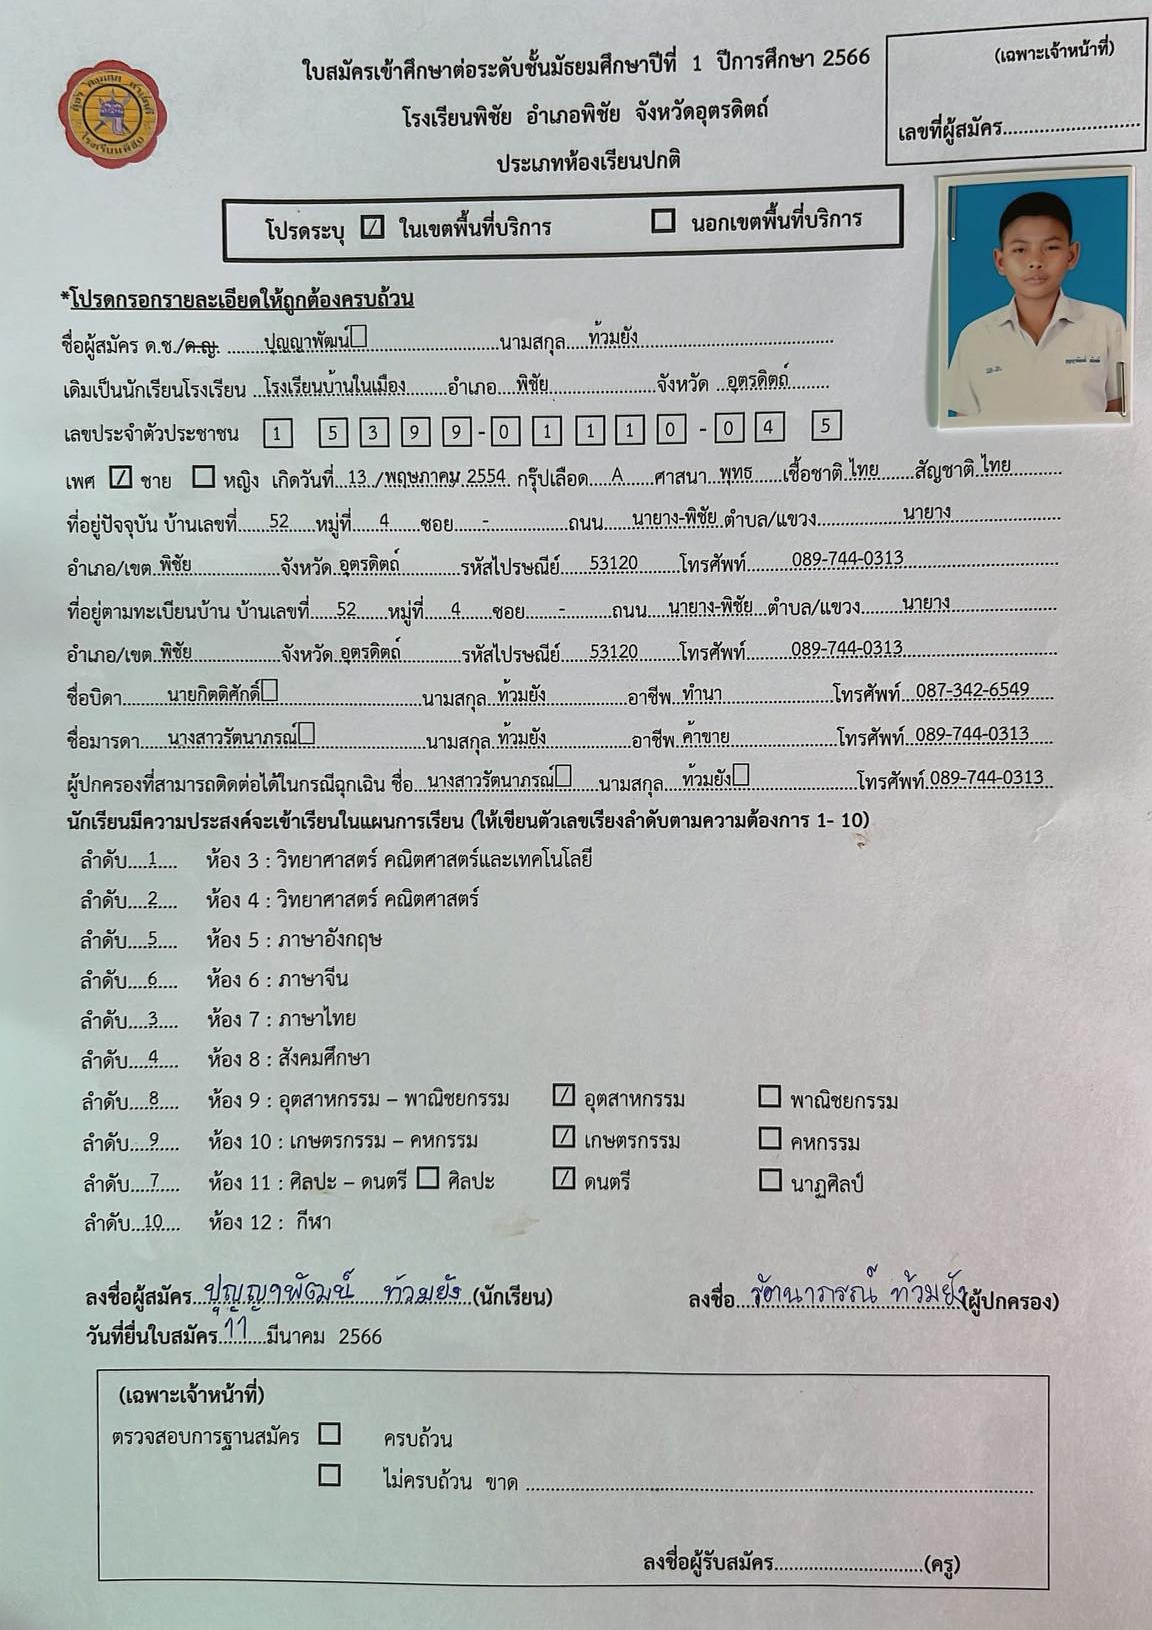 ใบสมัครเข้าศึกษาต่อระดับชั้นมัธยมศึกษาปีที่ 1 ปีการศึกษา 2566
(เฉพาะเจ้าหน้าที่)
โรงเรียนพิชัย อำเภอพิชัย จังหวัดอุตรดิตถ์
เลขที่ผู้สมัคร..........................
ประเภทห้องเรียนปกติ
โปรดระบุ ☑ ในเขตพื้นที่บริการ ☐ นอกเขตพื้นที่บริการ
*โปรดกรอกรายละเอียดให้ถูกต้องครบถ้วน
ชื่อผู้สมัคร ด.ช./ด.ญ. ปุญญาพัฒน์ นามสกุล ท้วมยัง
เดิมเป็นนักเรียนโรงเรียน โรงเรียนบ้านในเมือง อำเภอ พิชัย จังหวัด อุตรดิตถ์
เลขประจำตัวประชาชน 1 5 3 9 9 - 0 1 1 1 0 - 0 4 5
เพศ ☑ ชาย ☐ หญิง เกิดวันที่ 13 /พฤษภาคม 2554 กรุ๊ปเลือด A ศาสนา พุทธ เชื้อชาติ ไทย สัญชาติ ไทย
ที่อยู่ปัจจุบัน บ้านเลขที่ 52 หมู่ที่ 4 ซอย - ถนน นายาง-พิชัย ตำบล/แขวง นายาง
อำเภอ/เขต พิชัย จังหวัด อุตรดิตถ์ รหัสไปรษณีย์ 53120 โทรศัพท์ 089-744-0313
ที่อยู่ตามทะเบียนบ้าน บ้านเลขที่ 52 หมู่ที่ 4 ซอย - ถนน นายาง-พิชัย ตำบล/แขวง นายาง
อำเภอ/เขต พิชัย จังหวัด อุตรดิตถ์ รหัสไปรษณีย์ 53120 โทรศัพท์ 089-744-0313
ชื่อบิดา นายกิตติศักดิ์ นามสกุล ท้วมยัง อาชีพ ทำนา โทรศัพท์ 087-342-6549
ชื่อมารดา นางสาวรัตนาภรณ์ นามสกุล ท้วมยัง อาชีพ ค้าขาย โทรศัพท์ 089-744-0313
ผู้ปกครองที่สามารถติดต่อได้ในกรณีฉุกเฉิน ชื่อ นางสาวรัตนาภรณ์ นามสกุล ท้วมยัง โทรศัพท์ 089-744-0313
นักเรียนมีความประสงค์จะเข้าเรียนในแผนการเรียน (ให้เขียนตัวเลขเรียงลำดับตามความต้องการ 1- 10)
ลำดับ 1 ห้อง 3 : วิทยาศาสตร์ คณิตศาสตร์และเทคโนโลยี
ลำดับ 2 ห้อง 4 : วิทยาศาสตร์ คณิตศาสตร์
ลำดับ 5 ห้อง 5 : ภาษาอังกฤษ
ลำดับ 6 ห้อง 6 : ภาษาจีน
ลำดับ 3 ห้อง 7 : ภาษาไทย
ลำดับ 4 ห้อง 8 : สังคมศึกษา
ลำดับ 8 ห้อง 9 : อุตสาหกรรม – พาณิชยกรรม ☑ อุตสาหกรรม ☐ พาณิชยกรรม
ลำดับ 9 ห้อง 10 : เกษตรกรรม – คหกรรม ☑ เกษตรกรรม ☐ คหกรรม
ลำดับ 7 ห้อง 11 : ศิลปะ – ดนตรี ☐ ศิลปะ ☑ ดนตรี ☐ นาฏศิลป์
ลำดับ 10 ห้อง 12 : กีฬา
ลงชื่อผู้สมัคร ปุญญาพัฒน์ ท้วมยัง (นักเรียน) ลงชื่อ รัตนาภรณ์ ท้วมยัง (ผู้ปกครอง)
วันที่ยื่นใบสมัคร 11 มีนาคม 2566
(เฉพาะเจ้าหน้าที่)
ตรวจสอบการฐานสมัคร ☐ ครบถ้วน
☐ ไม่ครบถ้วน ขาด ..........................
ลงชื่อผู้รับสมัคร..........................(ครู)